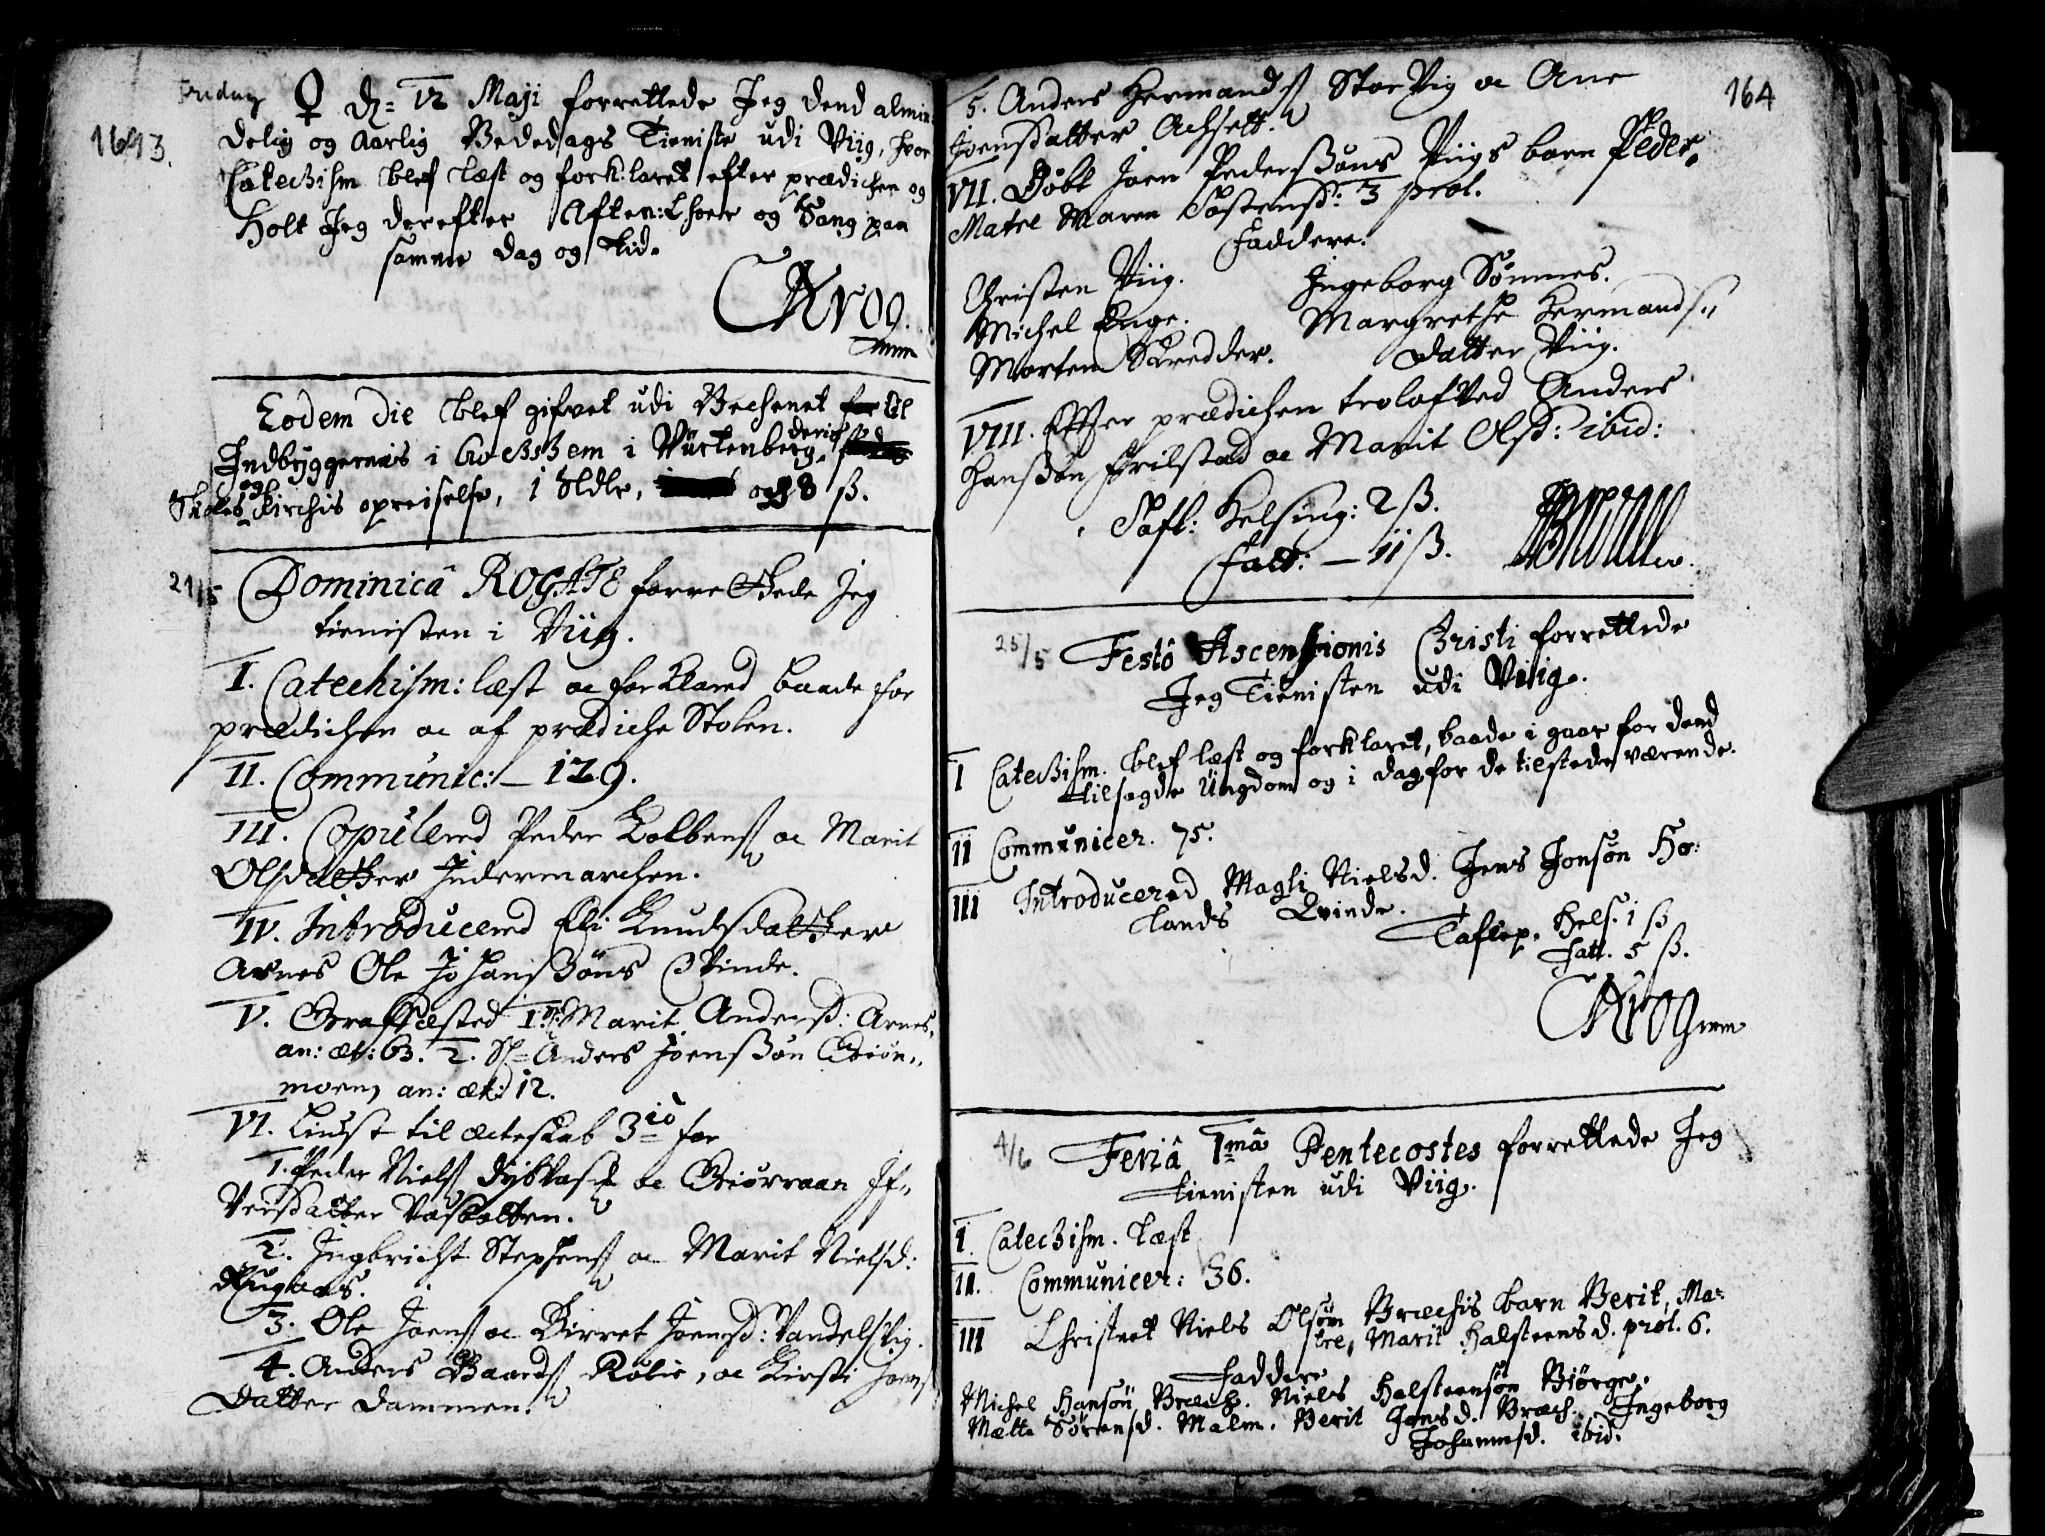 Fridag ♀ dz= 12 Maji forrettede Jeg dend almin:
1693.
delig og Aarlig Bededags Tieniste udi Viig, hvor
Catechism blef læst og forklaret efter prædichen og
Holt Jeg derefter Aften: Choer og Sang paa
samme dag og tid.
CKrog.
mm
Eodem die blef gifvet udi Bechenet til
Indbyggernis i Bochssem i Würtenberg, deris
og
Skoles Kirchis opreiselse, 1 Rdlr, og 8 ß.
21/5 Dominicâ ROGATE forrettede Jeg
tienisten i Viig.
I. Catechism: læst oc forklared baade for
prædichen oc af prædiche Stolen.
II. Communic: – 129.
III. Copulered Peder Kolbens oc Marit
Olsdatter Indermarchen.
IV. Introducered Eli Knudsdatter
Arnes Ole Johansßøns Qvinde.
V. Graffæsted 1. Marit Andersd: Arnes.
an: æt: 63. 2. Sl= Anders Joensßøn
moen, an: æt: 12.
VI. Liust til ecteskab 3io for
1. Peder Niels oc Giørraan If„
versdatter Vaskolten.
2. Ingbricht Stephens oc Marit Nielsd:
3. Ole Joens oc Birret Joensd: Vandelsvig.
4. Anders Baards Rolie, oc Kirsti Joens
datter Dammen.
164
5. Anders Hermands StorVig oc Ane
Joensdatter Achsett.
VII. Døbt Joen Pedersßøns Viigs barn Peder.
Matre Maren Tostensd: 3 prol.
Faddere.
Christen Viig. Ingeborg Sønnes.
Michel Enge. Margrethe Hermands„
Morten Skredder. datter Viig.
VIII. Efter prædichen trolofved Anders
Hansßøn oc Marit Olsd: ibid:
Tafl: Helsing: 2 ß.
Fatt: – 11 ß.
25/5 Festô Ascensionis Christi forrettede
Jeg Tienisten udi Viig.
I Catechism. blef læst og forklaret, baade i gaar for dend
tilsagde Ungdom og i dag for de tilstede værende.
II Communicer. 75.
III Introducered Magli Nielsd. Jens Jonsøn Ho:
lands Qvinde.
Taflep. Hels. 1 ß
Fatt. 5 ß.
CKrog mm
4/6 Feriâ 1mâ Pentecostes forrettede Jeg
tienisten udi Viig.
I. Catechism. læst
II. Communicer: 36.
III Christnet Niels Olsøn Bræchis barn Berit, Ma:
tre, Marit Halsteensd. prol. 6.
Faddere
Michel Hansøn Bræch. Niels Halsteensøn Biørge.
Mætte Sørensd. Malm. Berit Jonsd. Bræch. Ingeborg
Johannsd. ibid.